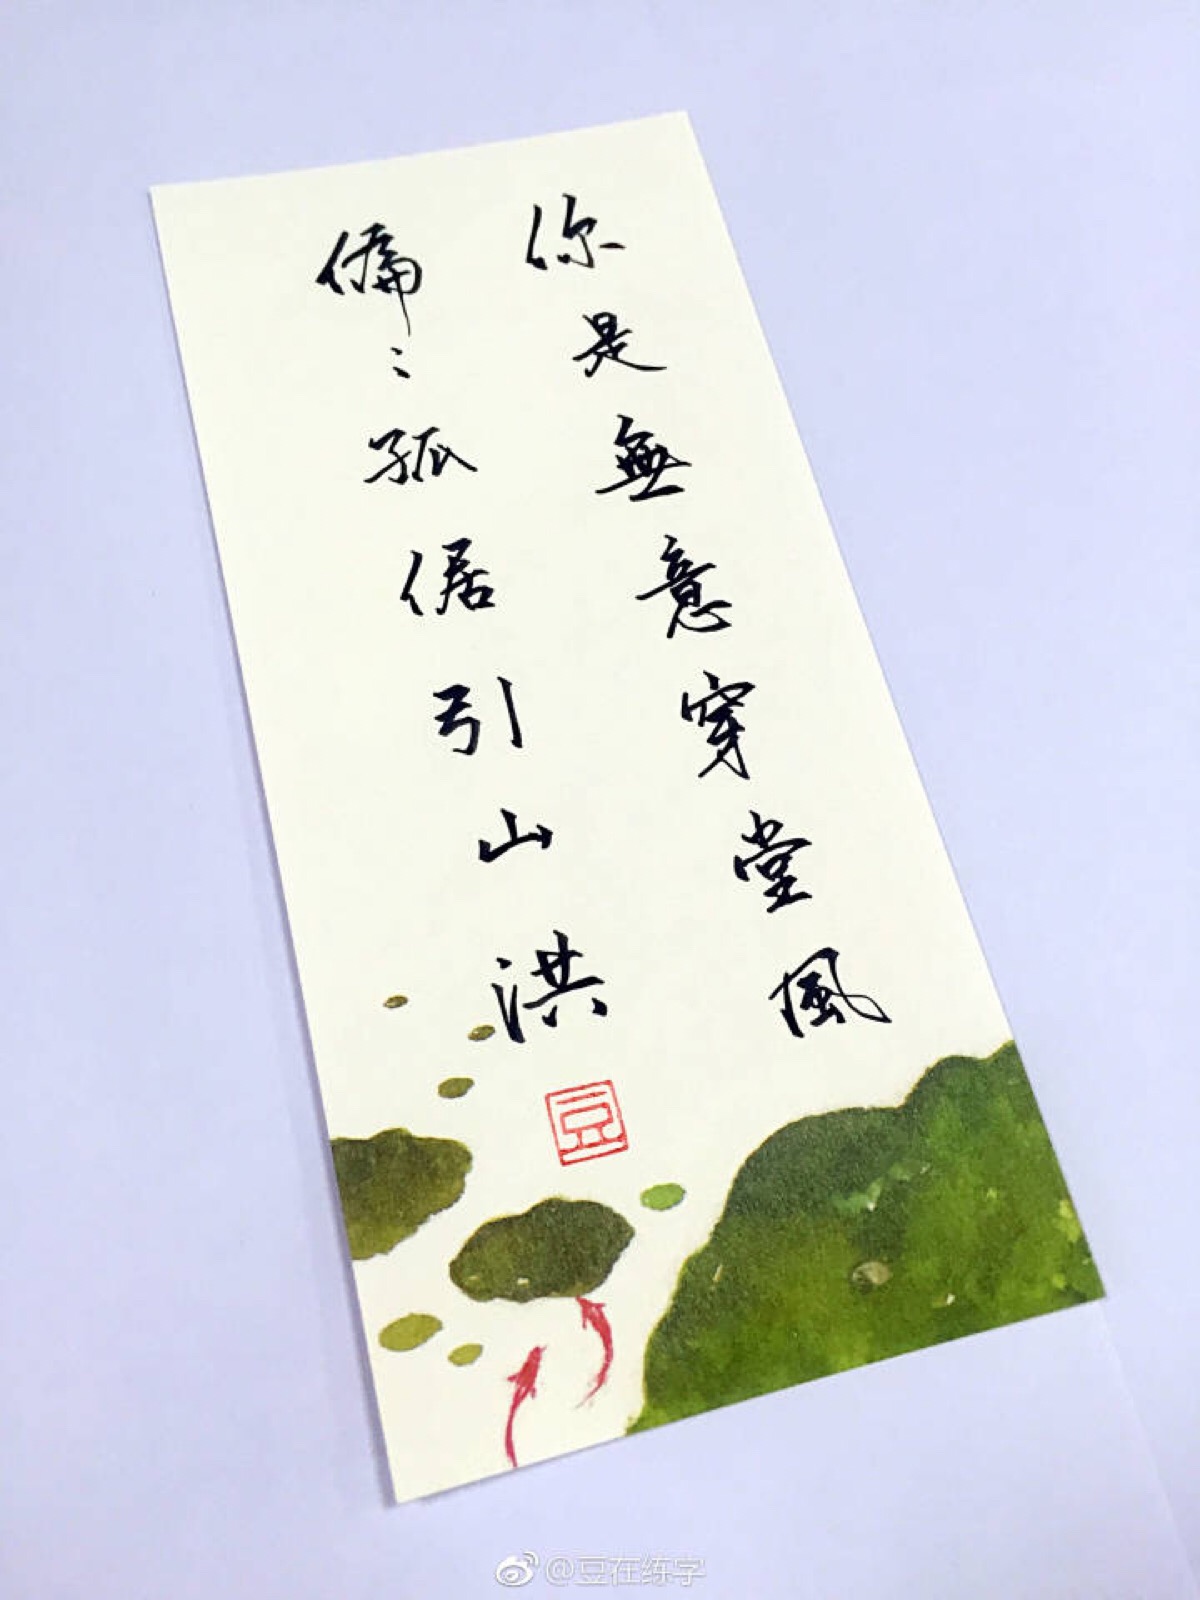 你是無意穿堂風
偏〻孤倨引山洪
豆
@豆在练字